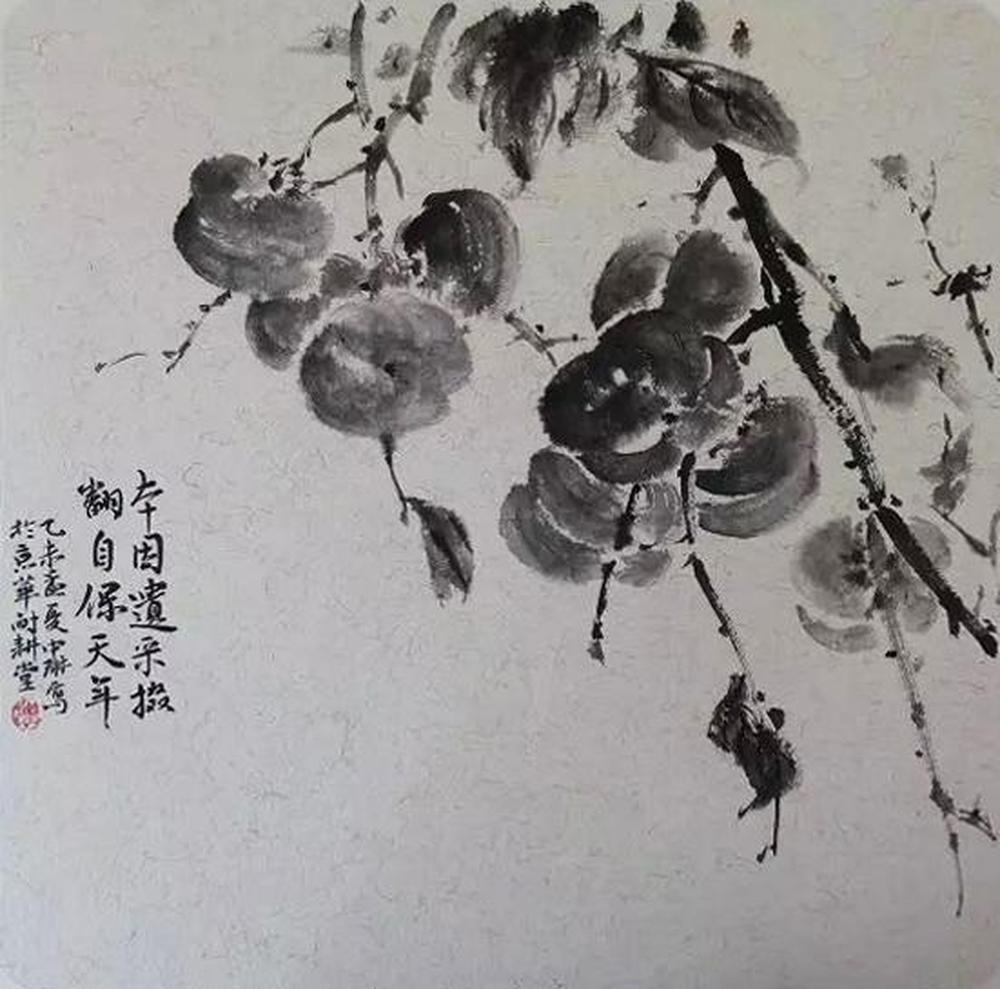 本因遗采掇
翻自保天年
乙未孟夏中琳写
於京华耐耕堂